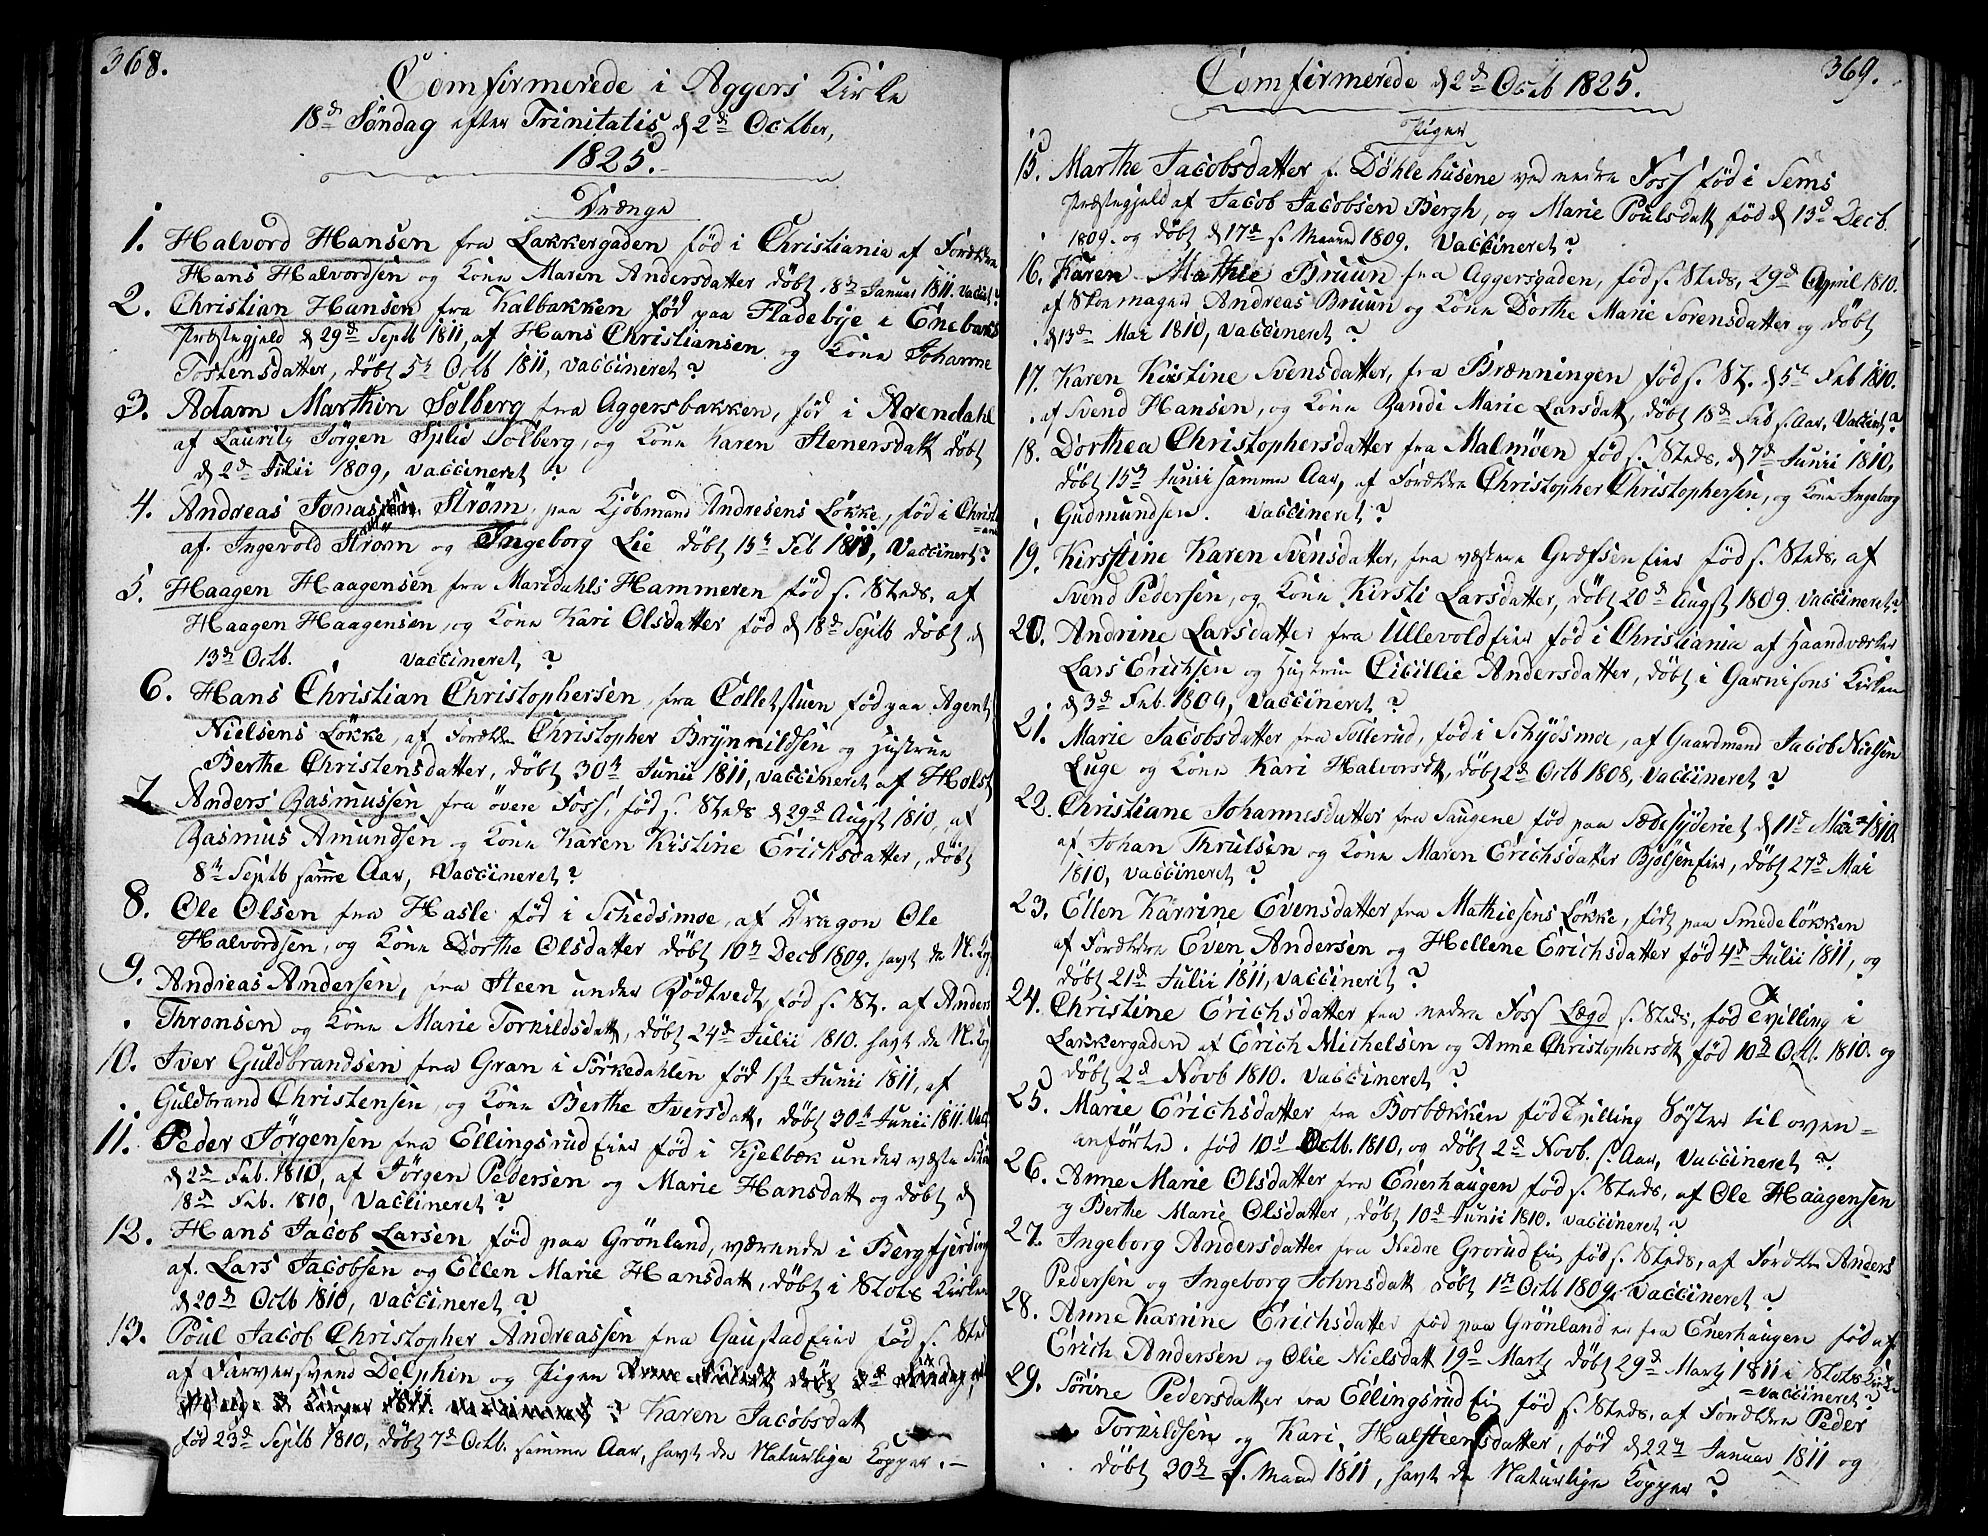 368.
Comfirmerede i Aggers Kirke
18de Søndag efter Trinitatis d 2de Octber,
1825.
Drænge
1. Halvord Hansen fra Lakkergaden fød i Christiania af Forældre
Hans Halvordsen og Kone Maren Andersdatter døbt 18de Januar 1811. Vaccinert?
2. Christian Hansen fra Kalbakken fød paa Fladebye i Enebaks
Præstegjeld d 29de Septb 1811, af Hans Christiansen og Kone Johanne
Tostensdatter, døbt 5te Octb 1811, vaccineret?
3. Adam Marthin Solberg fra Aggersbakken, fød i Arendahl
af Lauritz Jørgen Splid Solberg, og Kone Karen Stenersdatt døbt
d 2de Julii 1809, vaccineret?
4. Andreas Jonas Strøm, paa Kjøbmand Andresens Løkke, fød i Christi
=ania
af Ingevold Strøm og Ingeborg Lie døbt 15de Feb 1811, Vaccineret?
5. Haagen Haagensen fra Maridahls Hammeren fød s. Steds, af
Haagen Haagensen, og Kone Kari Olsdatter fød d 18de Septb døbt d
13de Octb. vaccineret?
6. Hans Christian Christophersen, fra Colletstuen fød paa Agent
Nielsens Løkke, af Forældre Christopher Brynnildsen og Hustrue
Berthe Christensdatter, døbt 30te Junii 1811, vaccineret af Holst
7. Anders Rasmussen fra øvere Foss, fød s. Steds d 29de Augst 1810, af
Rasmus Amundsen og Kone Karen Kistine Erichsdatter, døbt
8de Septb samme Aar, Vaccineret?
8. Ole Olsen fra Hasle fød i Schedsmoe, af Dragon Ole
Halvordsen, og Kone Dorthe Olsdatter døbt 10de Decb 1809. havt de N. Kop
9. Andreas Andersen, fra Steen under Rødtvedt, fød s. St. af Anders
Thronsen og Kone Marie Torkildsdatt, døbt 24de Julii 1810. havt de N. Kop
10. Iver Guldbrandsen fra Gran i Sørkedahlen fød 1ste Junii 1811, af
Guldbrand Christensen, og Kone Berthe Iversdatt, døbt 30te Junii 1811. Vacc
11. Peder Jørgensen fra Ellingsrud Eier fød i Kjelbæk under væstre
d 2de Feb. 1810, af Jørgen Pedersen og Marie Hansdatt og døbt d
18de Feb. 1810, Vaccineret?
12. Hans Jacob Larsen fød paa Grønland, værende i Bergfjerding
af Lars Jacobsen og Ellen Marie Hansdatt, døbt i Slots Kirken
d 20de Octb 1810, vaccineret?
13. Poul Jacob Christopher Andreassen fra Gaustad Eier fød s. Sted
af Farversvend Delphin og Pigen
Karen Jacobsdatt
fød 23de Septb 1810, døbt 7de Octb. samme Aar, havt de Naturlige Kopper.
369.
Comfirmerede d 2de Octb 1825.
Piger
15. Marthe Jacobsdatter f. Døhlehusene ved nedre Foss fød i Sems
Præstegjeld af Jacob Jacobsen Bergh, og Marie Poulsdatt fød d 13de Decb.
1809. og døbt d 17de s. Maaned 1809. Vaccineret?
16. Karen Mathie Bruun fra Aggersgaden, fød s. Steds, 29de April 1810.
af Skoemager Andreas Bruun og Kone Dorthe Marie Sørensdatter og døbt
d 13de Mai 1810, vaccineret?
17. Karen Kistine Svensdatter, fra Brænningen fød s. St. d 5te Feb 1810.
af Svend Hansen, og Kone Randi Marie Larsdatt, døbt 18de Feb s. Aar, Vaccinet?
18. Dorthea Christophersdatter fra Malmøen fød s. Steds, d 7de Junii 1810,
døbt 15de Junii samme Aar, af Forældre Christopher Christophersen, og Kone Ingeborg
Gudmundsen. vaccineret?
19. Kirsstine Karen Svensdatter, fra væstere Græfsen Eier fød s. Steds, af
Svend Pedersen, og Kone Kirsti Larsdatter, døbt 20de Augst 1809. vaccineret?
20. Andrine Larsdatter fra Ullevold Eier fød i Christiania af Haandværker
Lars Erichsen og Hustrue Cicillie Andersdatter, døbt i Garnisons Kirken
d 3de Feb. 1809, vaccineret?
21. Marie Jacobsdatter fra Sollerud, fød i Schydsmoe, af Gaardmand Jacob Nielsen
Luge og Kone Kari Halvorsdt, døbt 2de Octb 1808, vaccineret?
22. Christiane Johannesdatter fra Saugene fød paa Sæbesyderiet d 11te Mai 1810
af Johan Thrulsen og Kone Maren Erichsdatter Bjølsen Eier, døbt 27de Mai
1810, vaccineret?
23. Ellen Karrine Evensdatter fra Mathiesens Løkke, født paa Smedeløkken
af Forældre Even Andersen og Hellene Erichsdatter fød 4de Julii 1811, og
døbt 21de Julii 1811, vaccineret?
24. Christine Erichsdatter fra nedre Foss Lægd s. Steds, fød Tvilling i
Lakkergaden af Erich Michelsen og Anne Christophersdt fød 10de Octb. 1810. og
døbt 2de Novb 1810. Vaccineret?
25. Marie Erichsdatter fra Borbækken fød Tvilling Søster til oven=
anførte. fød 10de Octb. 1810, og døbt 2de Novb. s. Aar, vaccineret?
26. Anne Marie Olsdatter fra Enerhaugen fød s. Steds, af Ole Haagensen
og Berthe Marie Olsdatter, døbt 10de Junii 1810. vaccineret?
27. Ingeborg Andersdatter fra Nedre Grorud Eie fød s. Steds, af Forældre Anders
Pedersen og Ingeborg Johnsdatt døbt 1ste Octb 1809, vaccineret?
28. Anne Karrine Erichsdatter fød paa Grønland er fra Enerhaugen fød af
Erich Andersen og Olie Nielsdatt 19de Martz døbt 29de Martz 1811 i Slots Kirken
=vaccineret?
29. Sørine Pedersdatter fra Ellingsrud Eie fød s. Steds, af Forældre Peder
Torkildsen og Kari Halsteensdatter, fød d 22de Januar 1811 og
døbt 30te s. Maaned 1811, havt de Naturlige Kopper?